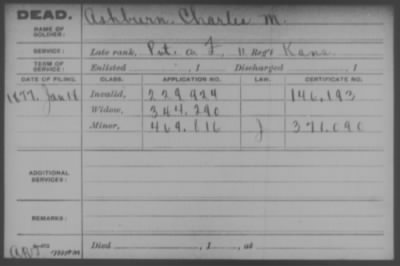 DEAD.
Ashburn, Charles M.
NAME OF SOLDIER:
SERVICE: Late rank, Pvt. Co F, 11 Reg't Kans.
TERM OF SERVICE: Enlisted , 1 Discharged , 1
DATE OF FILING. CLASS. APPLICATION NO. LAW. CERTIFICATE NO.
1877. Jan 18 Invalid, 229,929 146,193
Widow, 344,290
Minor, 469,616 J 371,090
ADDITIONAL SERVICES:
REMARKS:
Died , 1 , at